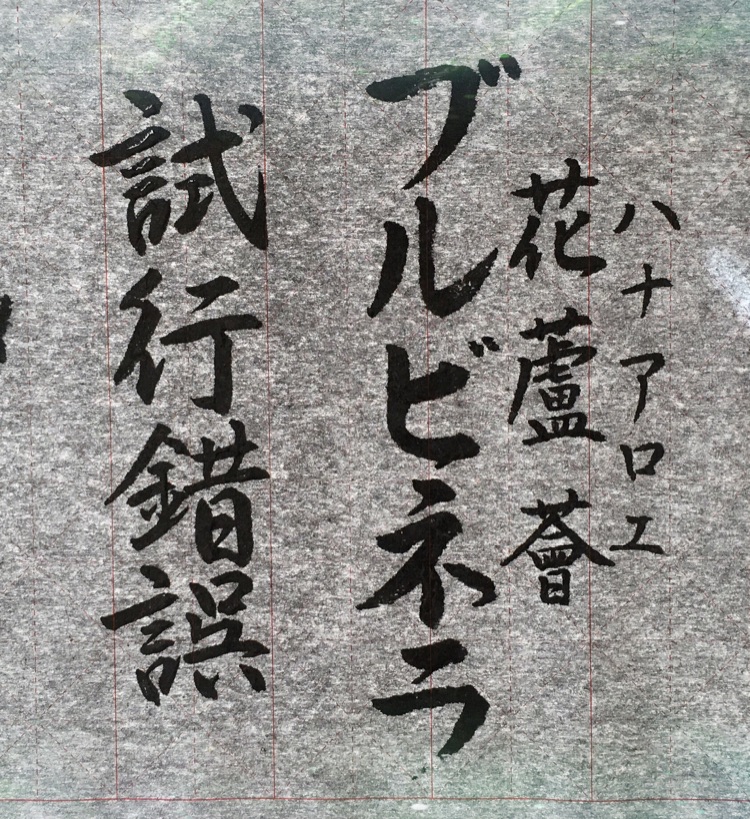 ハナアロエ
花蘆薈
ブルビネラ
試行錯誤